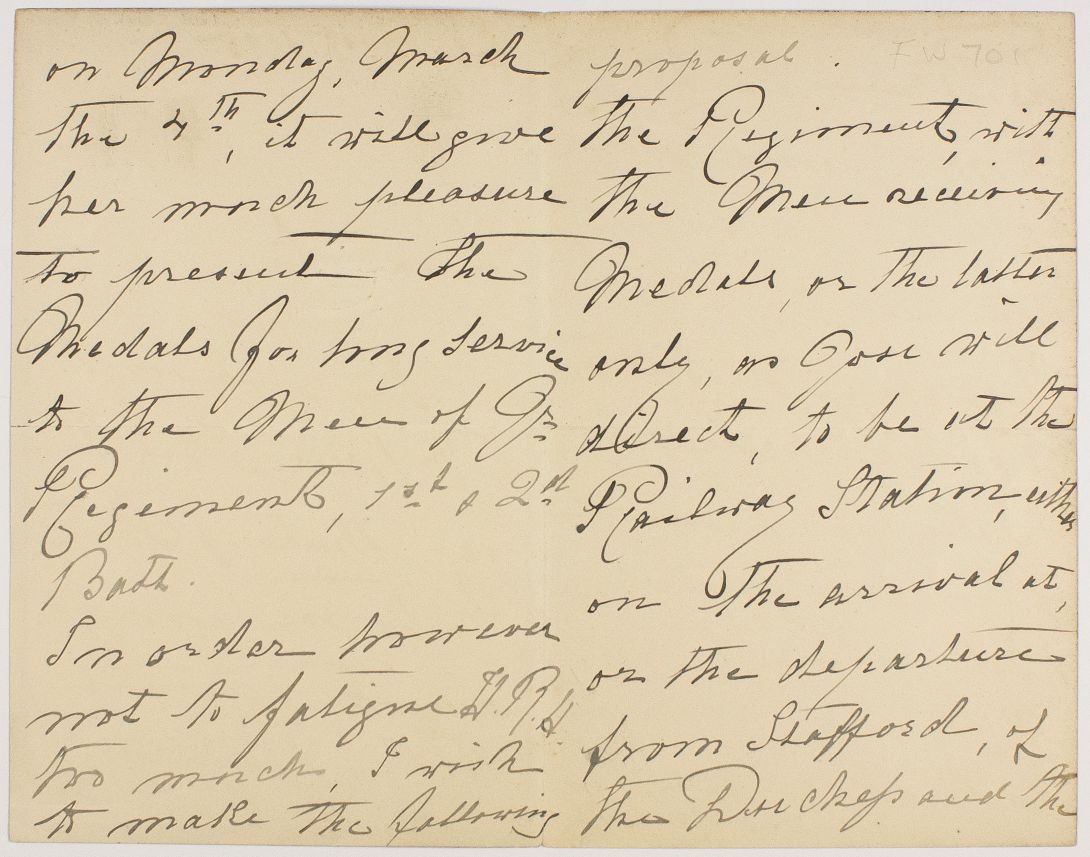 on Monday, March
the 4th, it will give
her much pleasure
to present the
Medals for long Service
to the Men of Yr
Regiment, 1st & 2nd
Batt.
In order however
not to fatigue H.R.H.
too much, I wish
to make the following
proposal.
FW 701
the Regiment, with
the Men receiving
Medals, or the latter
only, as You will
direct, to be at the
Railway Station, either
on the arrival at,
or the departure
from Stafford, of
the Duchess and the